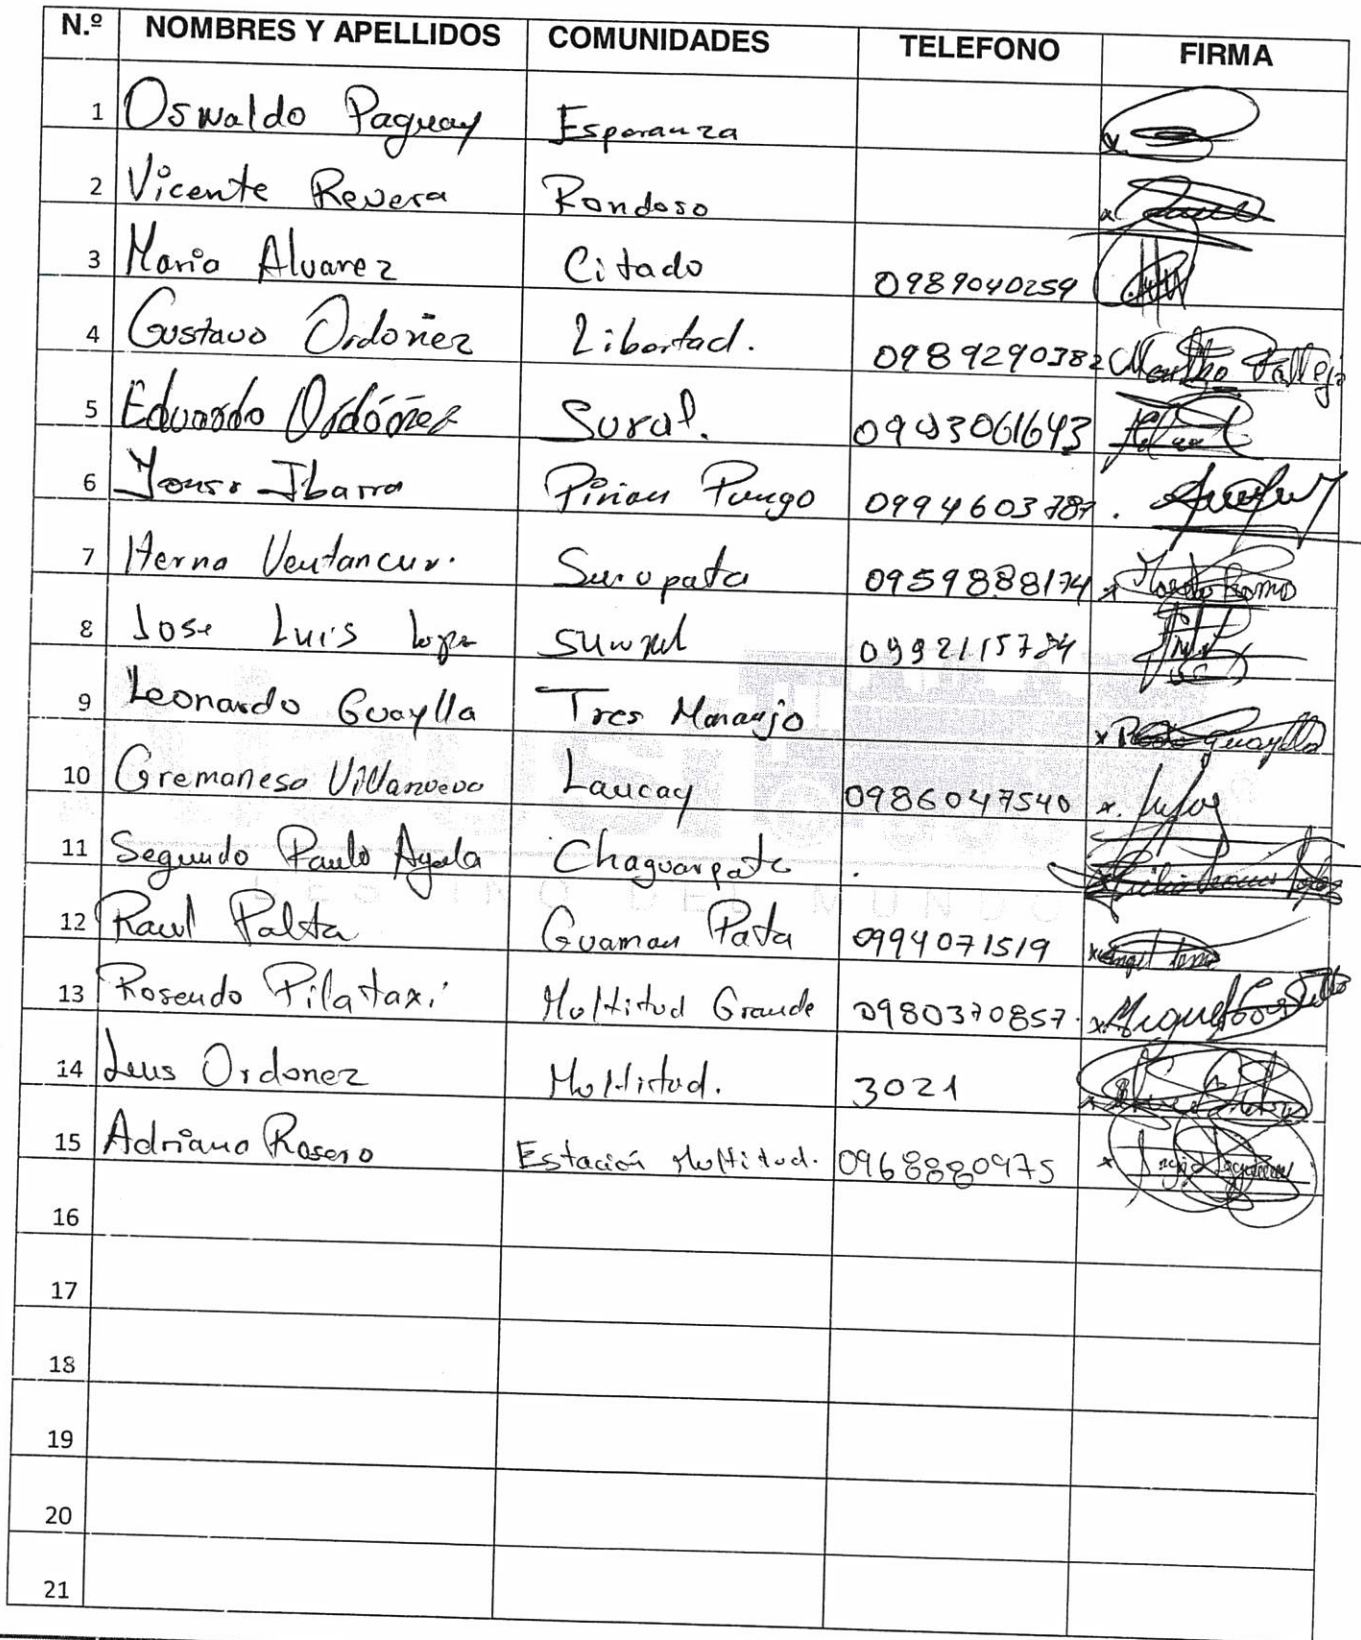 N.º NOMBRES Y APELLIDOS COMUNIDADES TELEFONO FIRMA
1 Oswaldo Paguay Esperanza
2 Vicente Revera Rondoso
3 Maria Alvarez Citado 0989040259
4 Gustavo Ordoñez Libertad. 0989290382
5 Eduardo Ordóñez Sural. 0943061643
6 Ibarra Piñan Pungo 0994603787.
7 Herna Ventancur. Suropata 0959888174
8 Jose Luis 0992115784
9 Leonardo Guaylla Tres Maraujo Guaylla
10 Gremanesa Villanueva Laucay 0986047540
11 Segundo Paulo Ayala Chaguarpata
12 Raul Palta Guaman Pata 0994071519
13 Rosendo Pilataxi Multitud Grande 0980370857. Miguel
DESTINO DEL MUNDO
14 Luis Ordonez Multitud. 3021
15 Adriano Rosero Estación Multitud. 0968880975
16
17
18
19
20
21